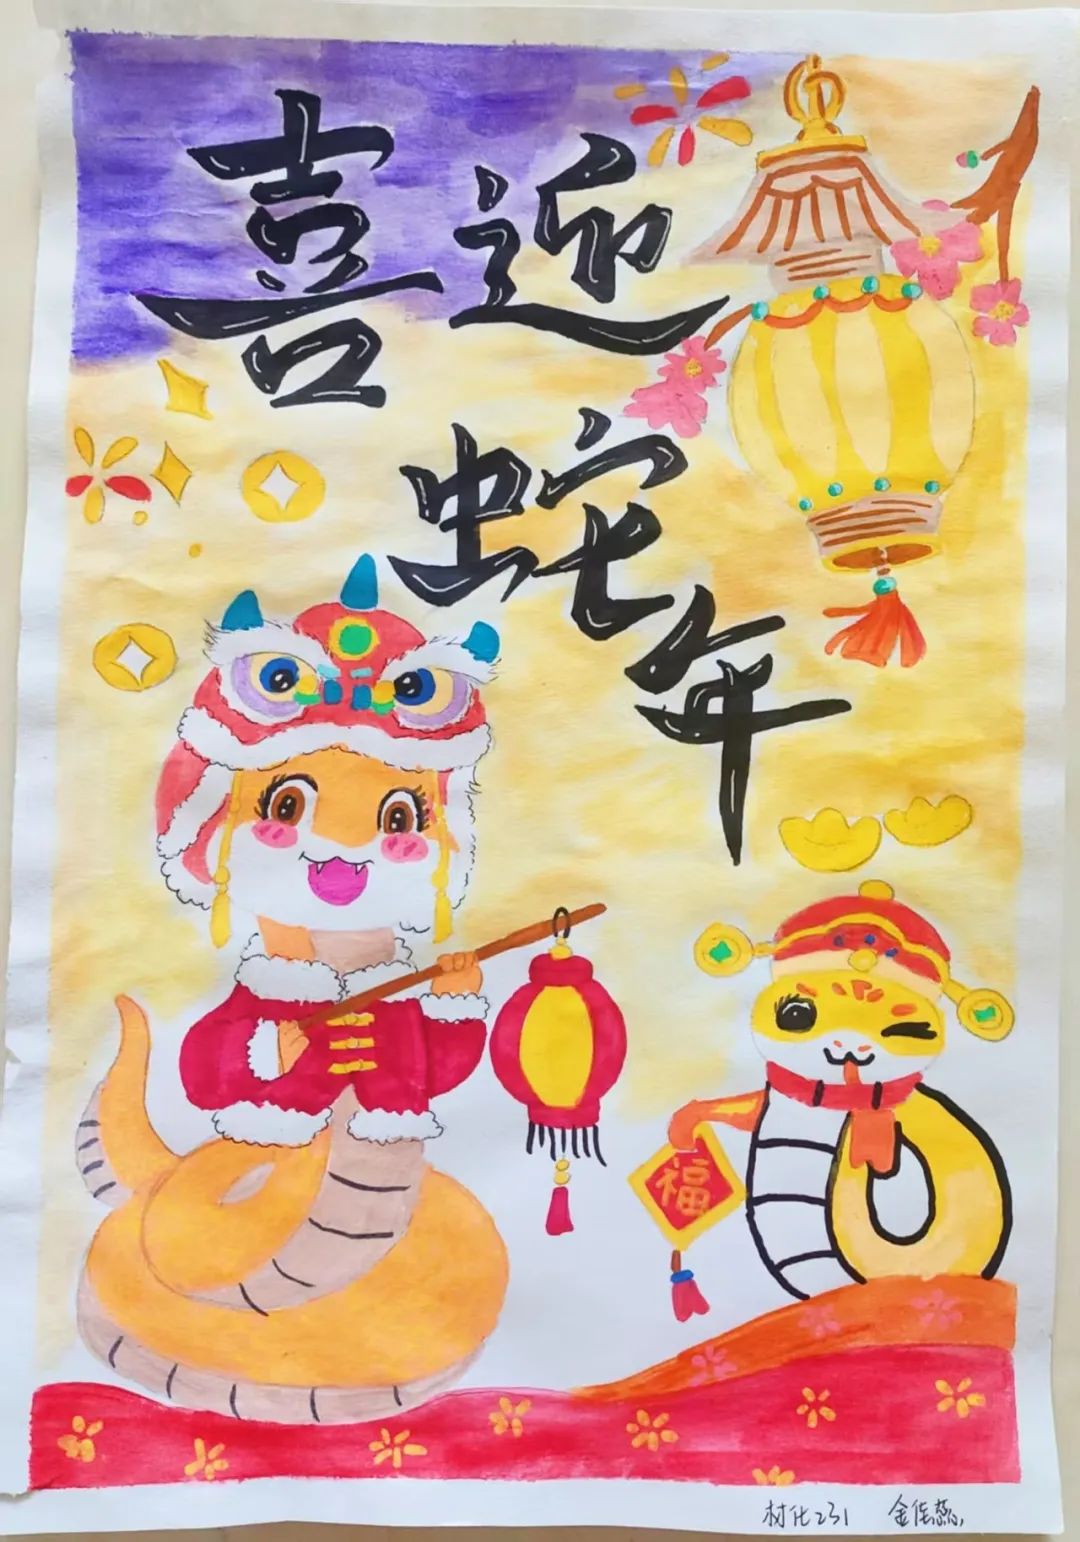 喜迎
蛇年
福
材化231 金佳蕊